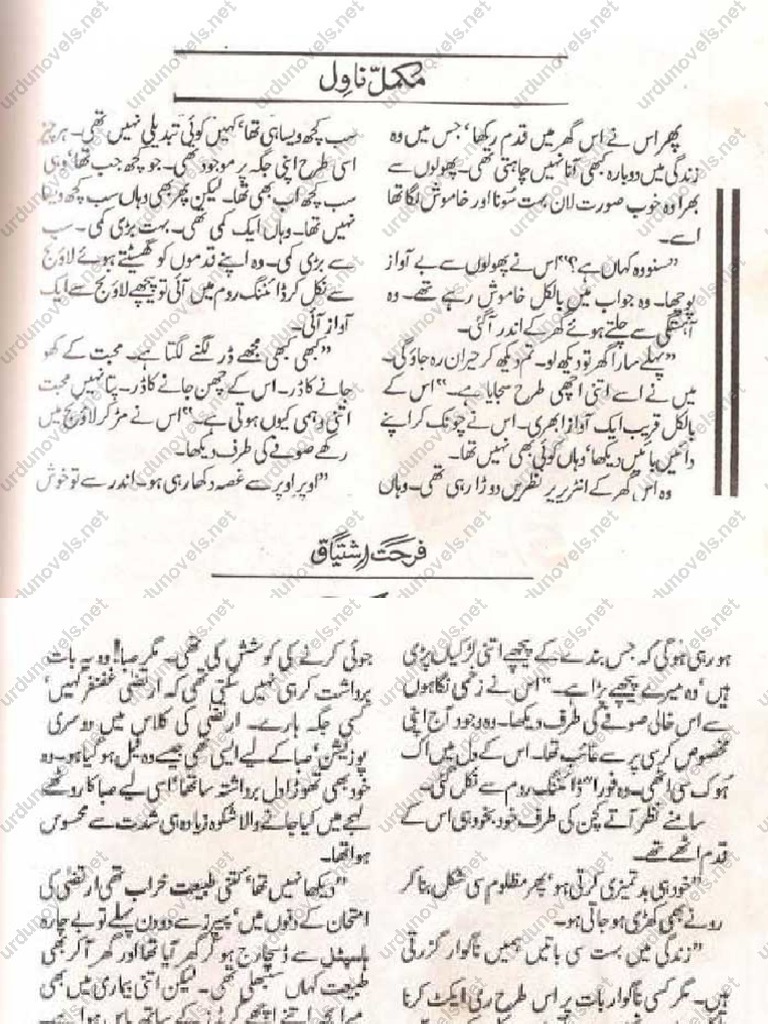 مکمل ناول
پھر اس نے اس گھر میں قدم رکھا‘ جس میں وہ
زندگی میں دوبارہ کبھی آنا نہیں چاہتی تھی۔ پھولوں سے
بھرا وہ خوب صورت لان بہت سُونا اور خاموش لگا تھا
اسے۔
”سنو وہ کہاں ہے؟“ اس نے پھولوں سے بے آواز
پوچھا۔ وہ جواب میں بالکل خاموش رہے تھے۔ وہ
آہستگی سے چلتے ہوئے گھر کے اندر آ گئی۔
”پہلے سارا گھر تو دیکھ لو۔ تم دیکھ کر حیران رہ جاؤ گی۔
میں نے اسے اتنی اچھی طرح سجایا ہے۔“ اس کے
بالکل قریب ایک آواز ابھری۔ اس نے چونک کر اپنے
دائیں بائیں دیکھا‘ وہاں کوئی بھی نہیں تھا۔
وہ اس گھر کے انٹریر پر نظریں دوڑا رہی تھی۔ وہاں
سب کچھ ویسا ہی تھا‘ کہیں کوئی تبدیلی نہیں تھی۔ ہر چیز
اسی طرح اپنی جگہ پر موجود تھی۔ جو کچھ جب تھا‘ وہی
سب کچھ اب بھی تھا۔ لیکن پھر بھی وہاں سب کچھ ویسا
نہیں تھا۔ وہاں ایک کمی تھی۔ بہت بڑی کمی۔ سب
سے بڑی کمی۔ وہ اپنے قدموں کو گھسیٹتے ہوئے لاؤنج
سے نکل کر ڈائننگ روم میں آئی تو پیچھے لاؤنج سے ایک
آواز آئی۔
”کبھی کبھی مجھے ڈر لگنے لگتا ہے۔ محبت کے کھو
جانے کا ڈر۔ اس کے چھن جانے کا ڈر۔ پتا نہیں محبت
اتنی وہمی کیوں ہوتی ہے۔“ اس نے مڑ کر لاؤنج میں
رکھے صوفے کی طرف دیکھا۔
”اوپر اوپر سے غصہ دکھا رہی ہو۔ اندر سے تو خوش
فرحت اشتیاق
ہو رہی ہو گی کہ جس بندے کے پیچھے اتنی لڑکیاں پڑی
ہیں‘ وہ میرے پیچھے پڑا ہے۔“ اس نے زخمی نگاہوں
سے اس خالی صوفے کی طرف دیکھا۔ وہ وجود آج اپنی
مخصوص کرسی پر سے غائب تھا۔ اس کے دل میں اک
ہُوک سی اٹھی۔ وہ فوراً ڈائننگ روم سے نکل گئی۔
سامنے نظر آتے کچن کی طرف خود بخود ہی اس کے
قدم اٹھے تھے۔
”خود ہی بدتمیزی کرتی ہو‘ پھر مظلوم سی شکل بنا کر
رونے بھی کھڑی ہو جاتی ہو۔
”زندگی میں بہت سی باتیں ہمیں ناگوار گزرتی
ہیں۔ مگر کسی ناگوار بات پر اس طرح ری ایکٹ کرنا
جوئی کرنے کی کوشش کی تھی۔ مگر صبا! وہ یہ بات
برداشت کر ہی نہیں سکتی تھی کہ ارتضیٰ غضنفر کہیں‘
کسی جگہ ہارے۔ ارتضیٰ کی کلاس میں دوسری
پوزیشن‘ صبا کے لیے ایسی تھی جیسے وہ فیل ہو گیا ہو۔ وہ
خود بھی تھوڑا دل برداشتہ سا تھا‘ اسی لیے صبا کا روٹھے
لہجے میں کیا جانے والا شکوہ زیادہ ہی شدت سے محسوس
ہوا تھا۔
”دیکھا نہیں تھا‘ کتنی طبیعت خراب تھی ارتضیٰ کی
امتحان کے دنوں میں‘ پیپرز سے دو دن پہلے تو بے چارہ
ہاسپٹل سے ڈسچارج ہو کر گھر آیا تھا اور گھر آ کر بھی
طبیعت کہاں سنبھلی تھی۔ لیکن اتنی بیماری میں بھی